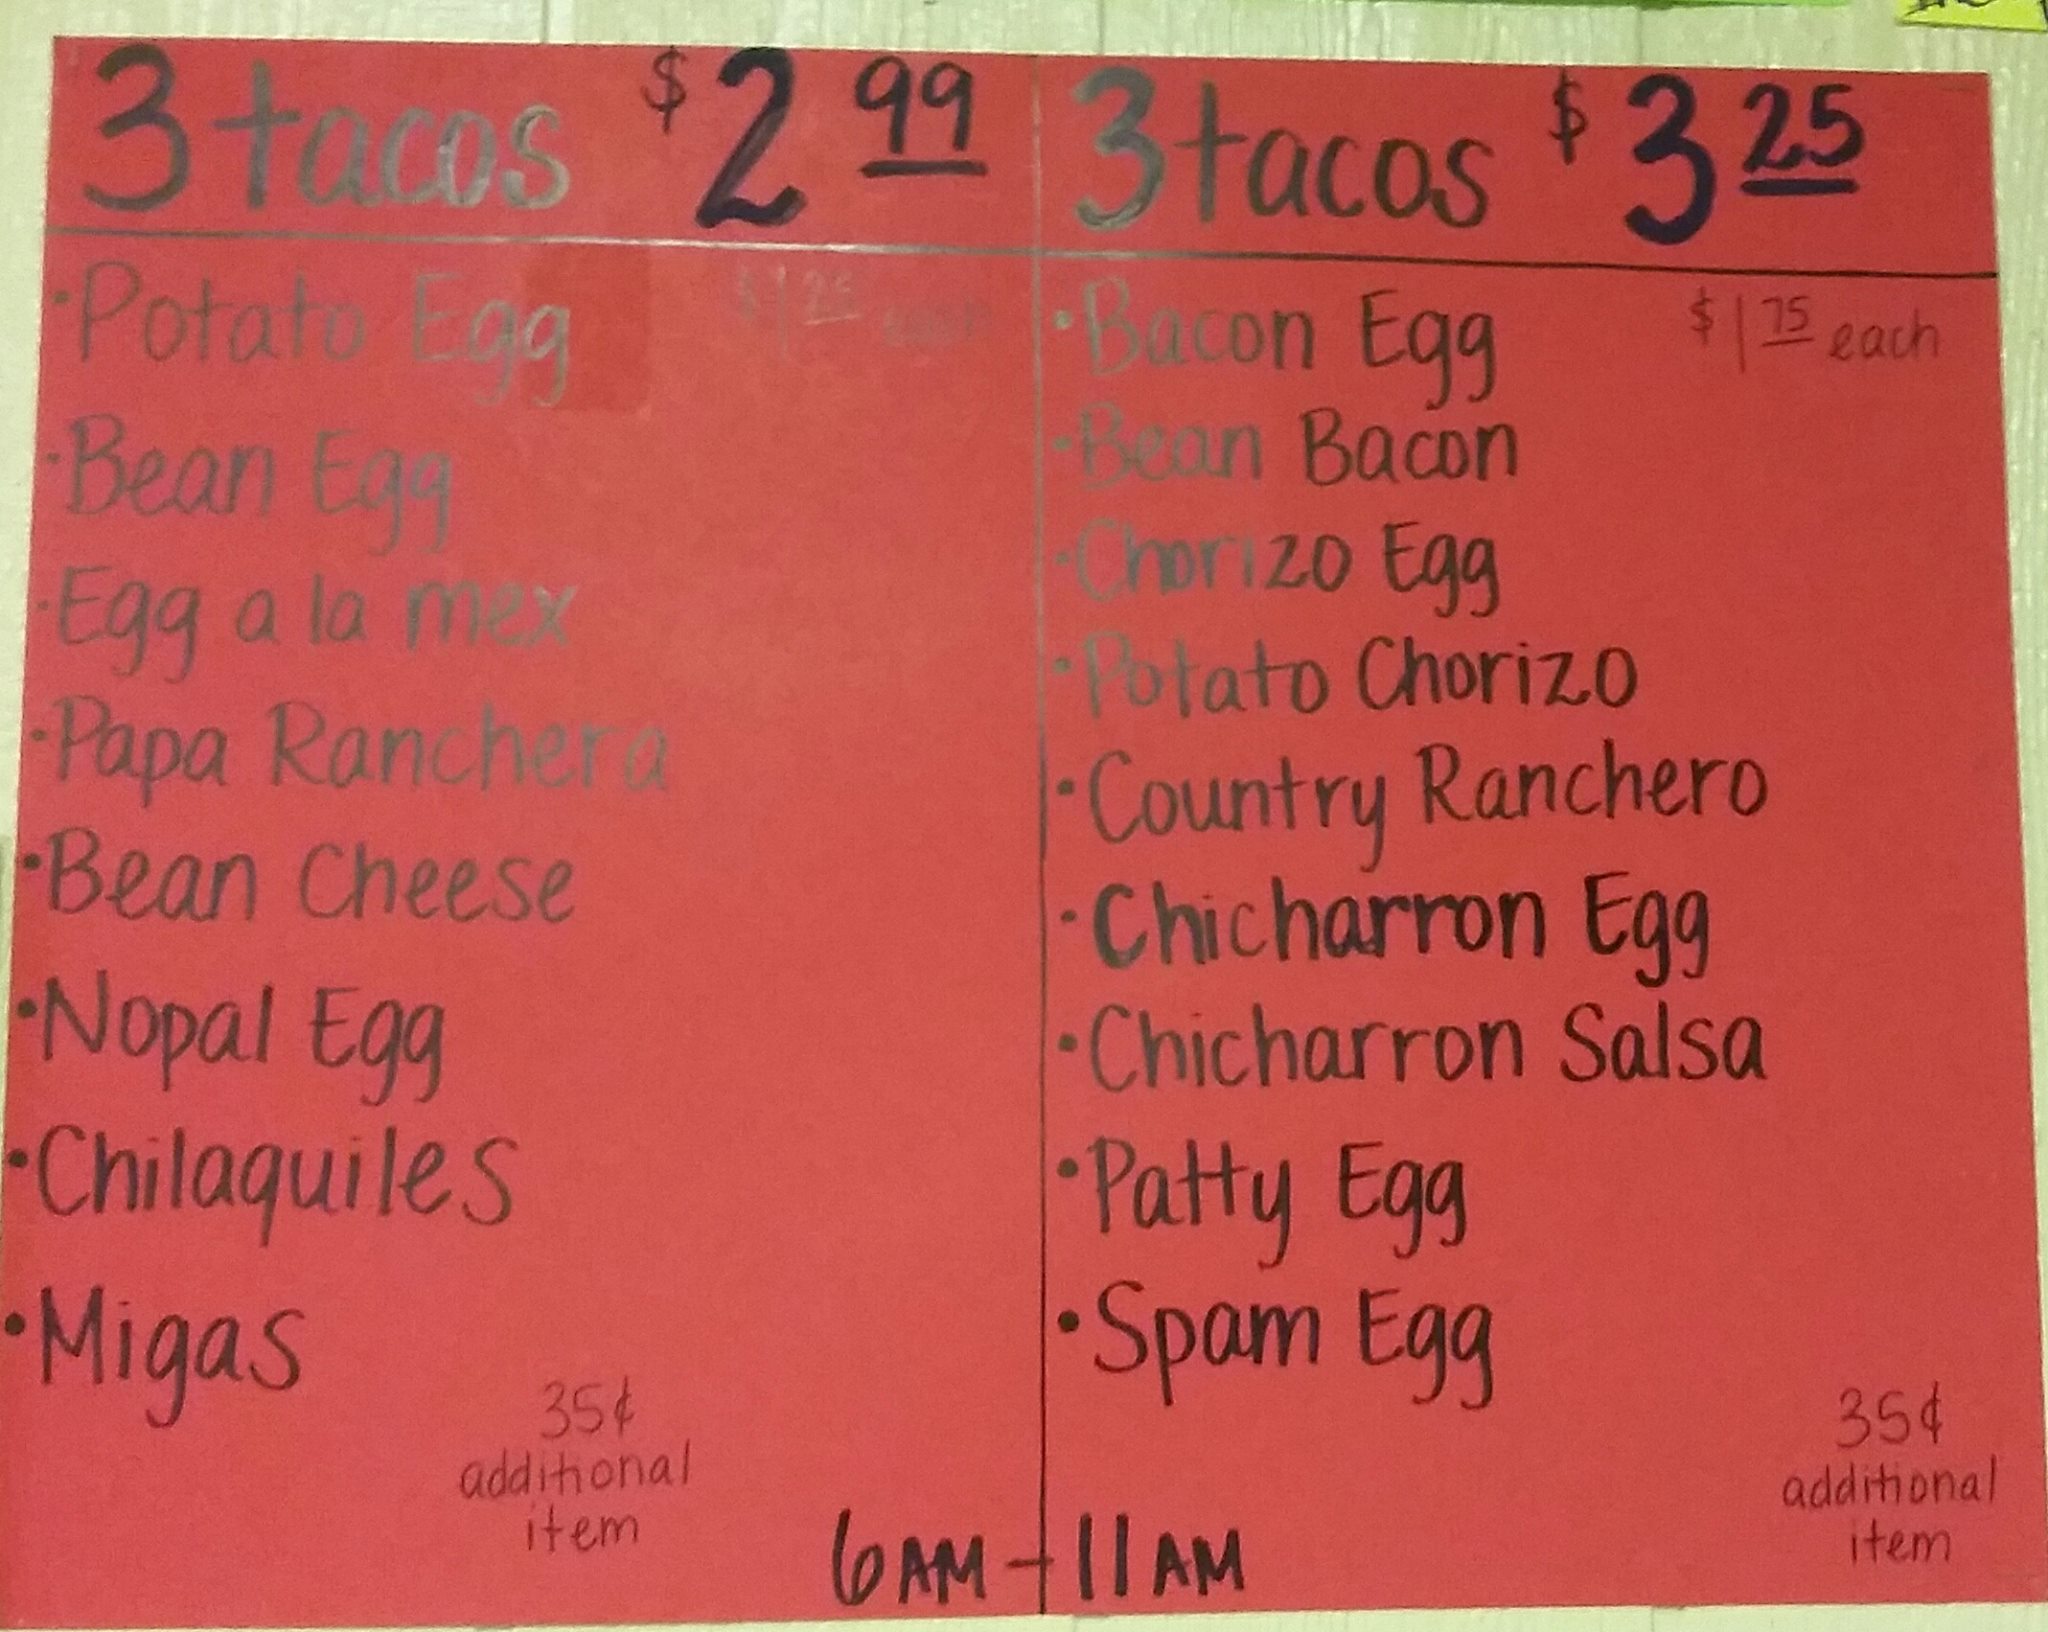 3 tacos $2 99
• Potato Egg $1 25 each
• Bean Egg
• Egg a la mex
• Papa Ranchera
• Bean Cheese
• Nopal Egg
• Chilaquiles
• Migas
35¢
additional
item
3 tacos $3 25
• Bacon Egg $1 75 each
• Bean Bacon
• Chorizo Egg
• Potato Chorizo
• Country Ranchero
• Chicharron Egg
• Chicharron Salsa
• Patty Egg
• Spam Egg
35¢
additional
item
6AM - 11AM